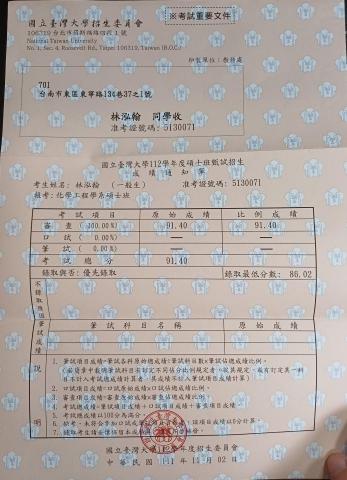 國立臺灣大學招生委員會
※考試重要文件
106319 台北市羅斯福路四段1號
National Taiwan University
No. 1, Sec. 4, Roosevelt Rd., Taipei 106319, Taiwan (R.O.C.)
印製單位：教務處
701
台南市東區東寧路134巷37之1號
林泓翰 同學收
准考證號碼：5130071
國立臺灣大學112學年度碩士班甄試招生
成績通知單
考生姓名：林泓翰 （一般生） 准考證號碼：5130071
報考：化學工程學系碩士班
考試項目 原始成績 比例成績
審查（100.00%） 91.40 91.40
口試（ 0.00%） — —
筆試（ 0.00%） — —
考試總分 91.40
錄取與否：優先錄取 錄取最低分數：86.02
不錄取應因筆試成績
筆試科目名稱 原始成績
說明
1. 筆試項目成績=筆試各科原始總成績/筆試科目數x筆試佔總成績比例。
2. 口試項目成績=口試原始成績x口試佔總成績比例。
3. 審查項目成績=審查原始成績x審查佔總成績比例。
4. 考試總成績=筆試項目成績+口試項目成績+審查項目成績。
5. 考試總成績以100分為滿分。
國立臺灣大學112學年度招生委員會
中華民國 111 年 11 月 02 日